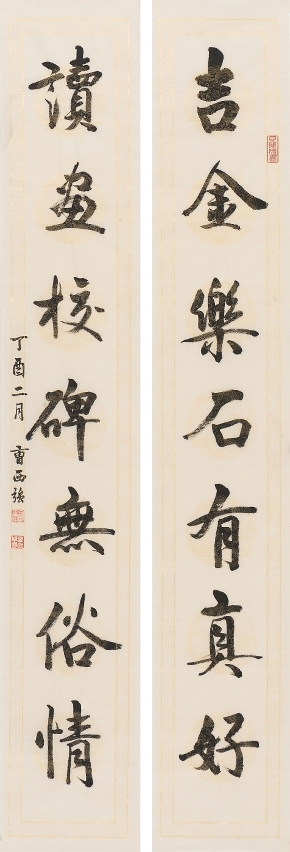 吉金樂石有真好
讀畫校碑無俗情
丁酉二月